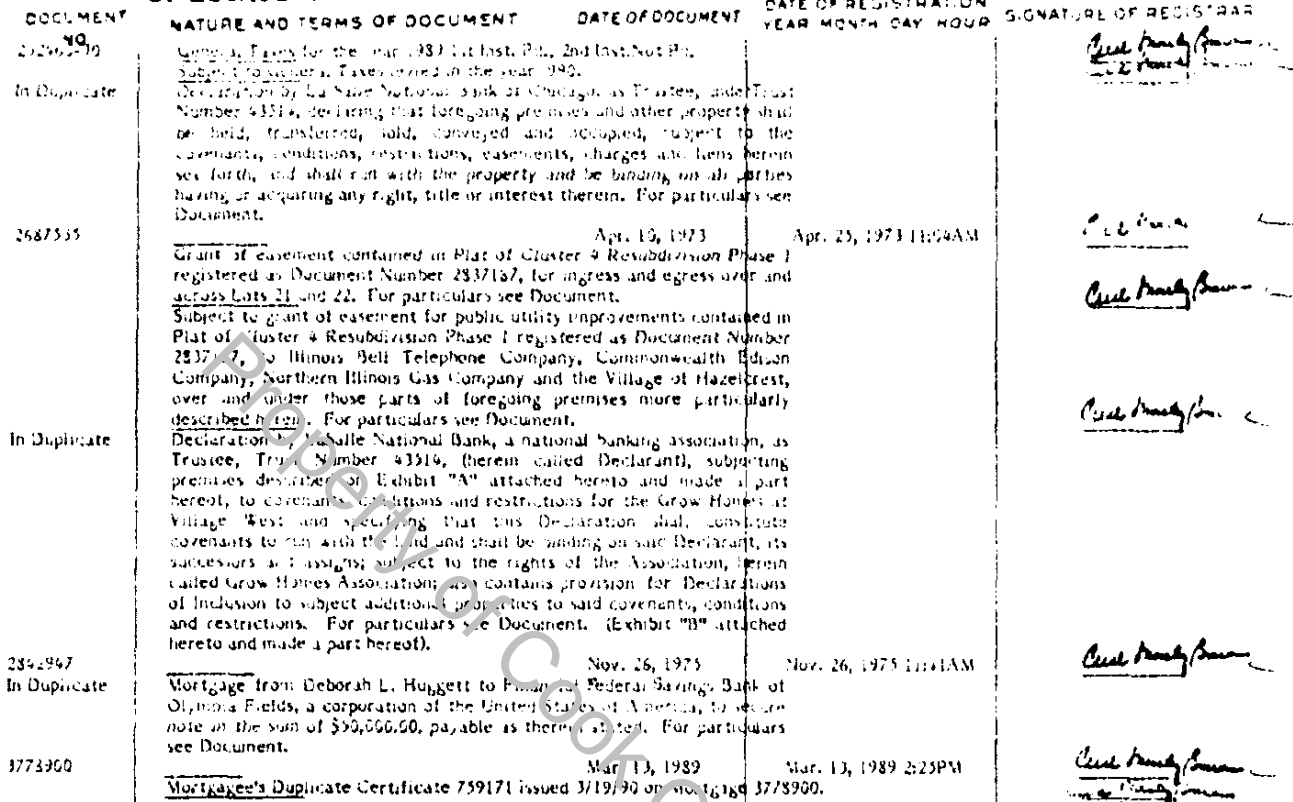 DOCUMENT NO.
NATURE AND TERMS OF DOCUMENT
DATE OF DOCUMENT
DATE OF REGISTRATION
YEAR MONTH DAY HOUR
SIGNATURE OF REGISTRAR
General Taxes for the year 1989 1st Inst. Pd., 2nd Inst. Not Pd.
Subject to General Taxes levied in the year 1990.
In Duplicate
Declaration by La Salle National Bank of Chicago, as Trustee, under Trust
Number 43514, declaring that foregoing premises and other property shall
be held, transferred, sold, conveyed and occupied, subject to the
covenants, conditions, restrictions, easements, charges and liens herein
set forth, and shall run with the property and be binding on all parties
having or acquiring any right, title or interest therein. For particulars see
Document.
2687535 Apr. 10, 1973 Apr. 25, 1973 11:04AM
Grant of easement contained in Plat of Cluster 4 Resubdivision Phase 1
registered as Document Number 2837187, for ingress and egress over and
across Lots 21 and 22. For particulars see Document.
Subject to grant of easement for public utility improvements contained in
Plat of Cluster 4 Resubdivision Phase 1 registered as Document Number
2837187, to Illinois Bell Telephone Company, Commonwealth Edison
Company, Northern Illinois Gas Company and the Village of Hazelcrest,
over and under those parts of foregoing premises more particularly
described herein. For particulars see Document.
In Duplicate
Declaration by LaSalle National Bank, a national banking association, as
Trustee, Trust Number 43514, (herein called Declarant), subjecting
premises described on Exhibit "A" attached hereto and made a part
hereof, to covenants, conditions and restrictions for the Grow Homes at
Village West and specifying that this Declaration shall constitute
covenants to run with the land and shall be binding on said Declarant, its
successors and assigns; subject to the rights of the Association, herein
called Grow Homes Association; also contains provision for Declarations
of Inclusion to subject additional properties to said covenants, conditions
and restrictions. For particulars see Document. (Exhibit "B" attached
hereto and made a part hereof).
2842947 Nov. 26, 1975 Nov. 26, 1975 11:41AM
In Duplicate
Mortgage from Deborah L. Huggett to Financial Federal Savings Bank of
Olympia Fields, a corporation of the United States of America, to secure
note in the sum of $50,000.00, payable as therein stated. For particulars
see Document.
3778900 Mar. 13, 1989 Mar. 13, 1989 2:25PM
Mortgagee's Duplicate Certificate 759171 issued 3/19/90 on Mortgage 3778900.
Property of Cook C